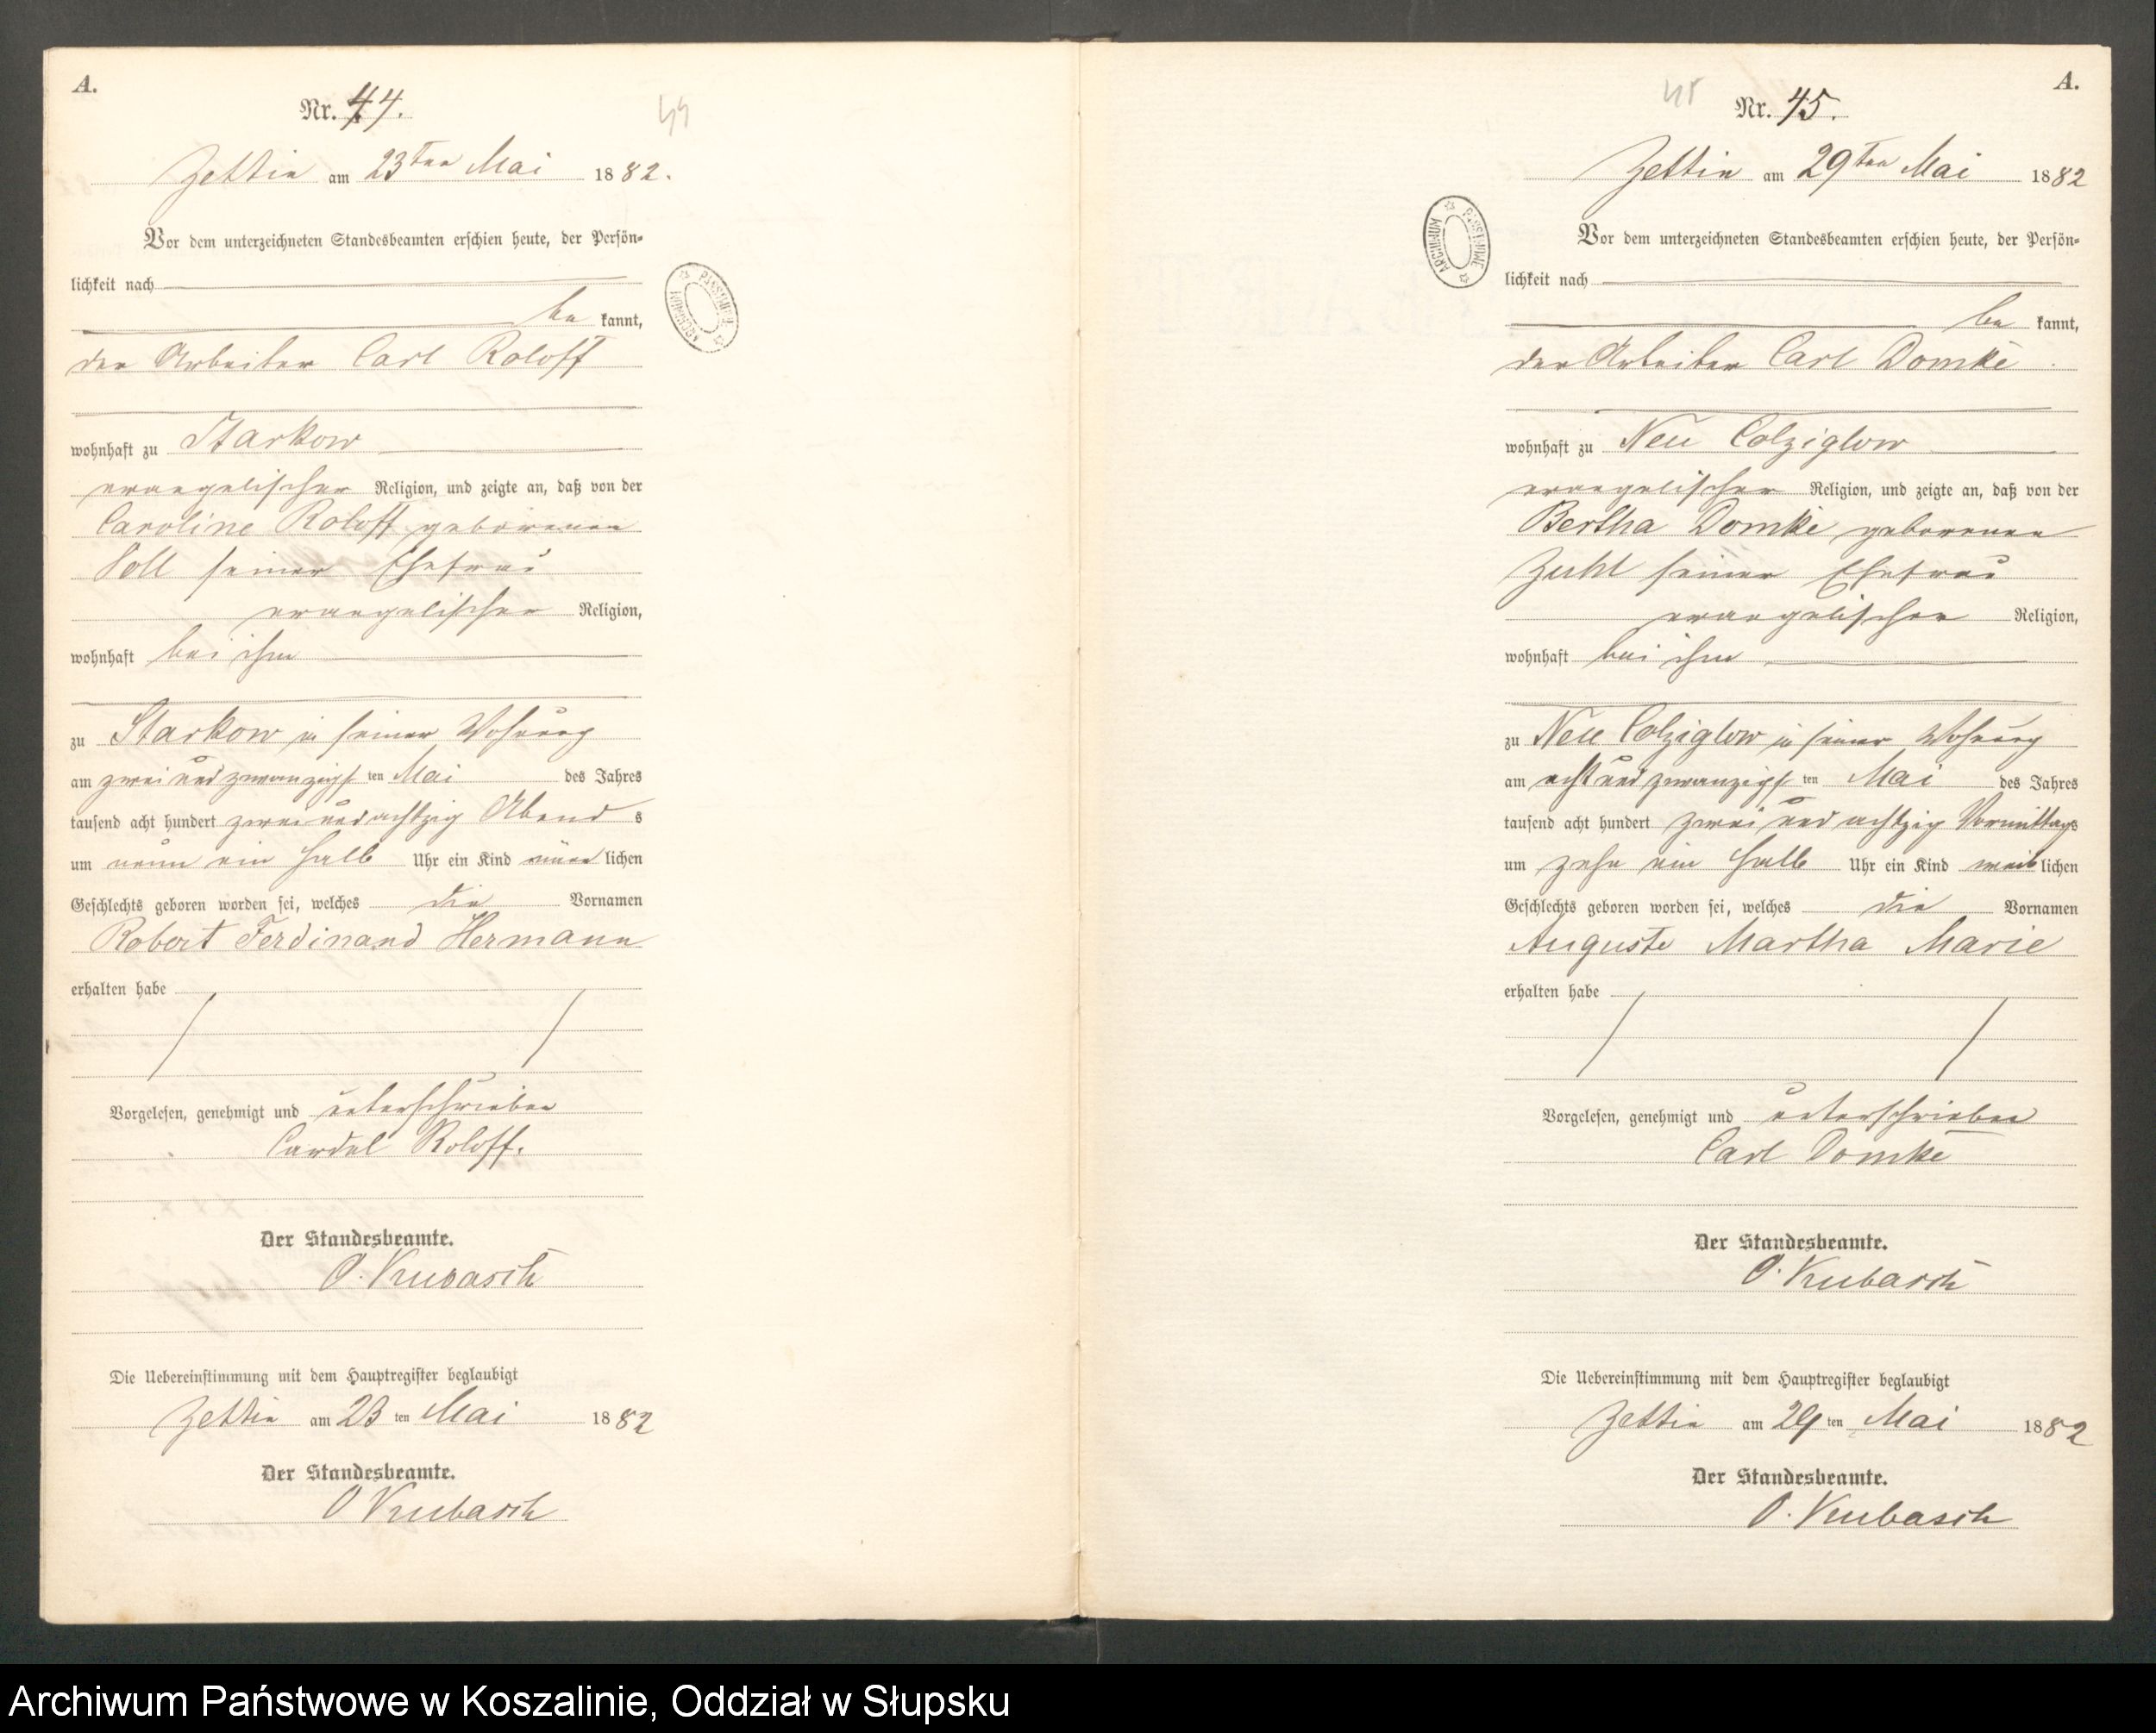 A.
Nr. 44.
44
Zettin am 23ten Mai 1882.
Vor dem unterzeichneten Standesbeamten erschien heute, der Persön-
lichkeit nach
be kannt,
der Arbeiter Carl Roloff
wohnhaft zu Starkow
evangelischer Religion, und zeigte an, daß von der
Caroline Roloff geborenen
Soll seiner Ehefrau
evangelischer Religion,
wohnhaft bei ihm
zu Starkow in seiner Wohnung
am zwei und zwanzigsten Mai des Jahres
tausend acht hundert zwei und achtzig Abends
um neun ein halb Uhr ein Kind männlichen
Geschlechts geboren worden sei, welches die Vornamen
Robert Ferdinand Hermann
erhalten habe
Vorgelesen, genehmigt und unterschrieben
Roloff.
Der Standesbeamte.
O. Kubasch
Die Uebereinstimmung mit dem Hauptregister beglaubigt
Zettin am 23ten Mai 1882
Der Standesbeamte.
O Kubasch
ARCHIWUM PAŃSTWOWE
A.
45
Nr. 45.
Zettin am 29ten Mai 1882
Vor dem unterzeichneten Standesbeamten erschien heute, der Persön-
lichkeit nach
be kannt,
der Arbeiter Carl Domke
wohnhaft zu Neu Colziglow
evangelischer Religion, und zeigte an, daß von der
Bertha Domke geborenen
Zuhl seiner Ehefrau
evangelischer Religion,
wohnhaft bei ihm
zu Neu Colziglow in seiner Wohnung
am acht und zwanzigsten Mai des Jahres
tausend acht hundert zwei und achtzig Vormittags
um zehn ein halb Uhr ein Kind weiblichen
Geschlechts geboren worden sei, welches die Vornamen
Auguste Martha Marie
erhalten habe
Vorgelesen, genehmigt und unterschrieben
Carl Domke
Der Standesbeamte.
O. Kubasch
Die Uebereinstimmung mit dem Hauptregister beglaubigt
Zettin am 29ten Mai 1882
Der Standesbeamte.
O. Kubasch
ARCHIWUM PAŃSTWOWE
Archiwum Państwowe w Koszalinie, Oddział w Słupsku